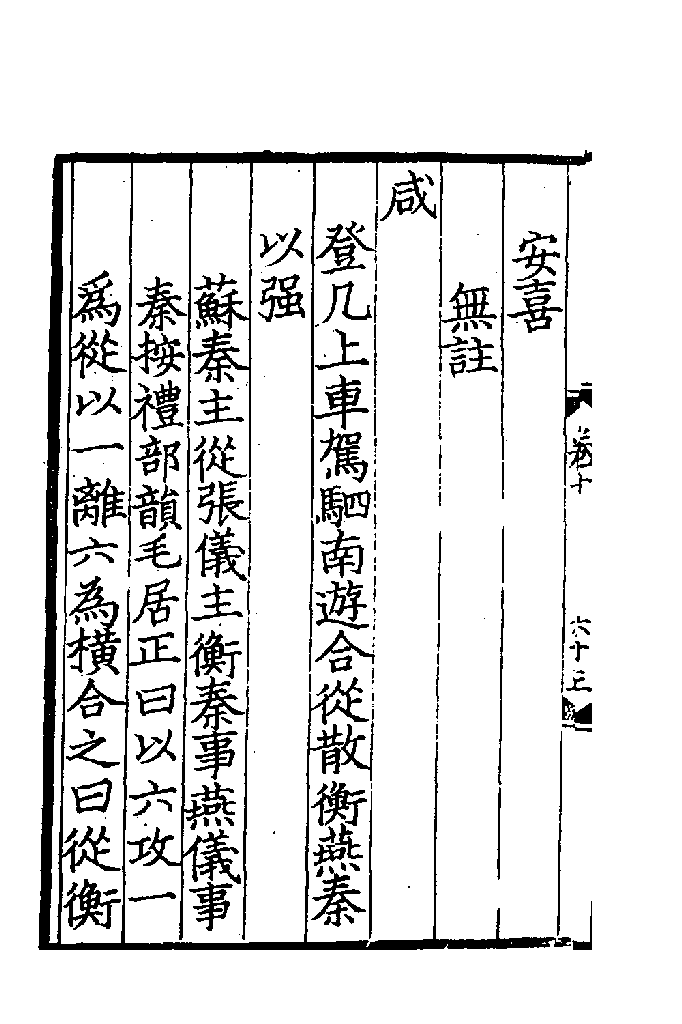 卷十
六十三
安喜
無註
咸
登几上車駕駟南遊合從散衡燕秦
以强
蘇秦主從張儀主衡秦事燕儀事
秦按禮部韻毛居正曰以六攻一
爲從以一離六為横合之曰從衡